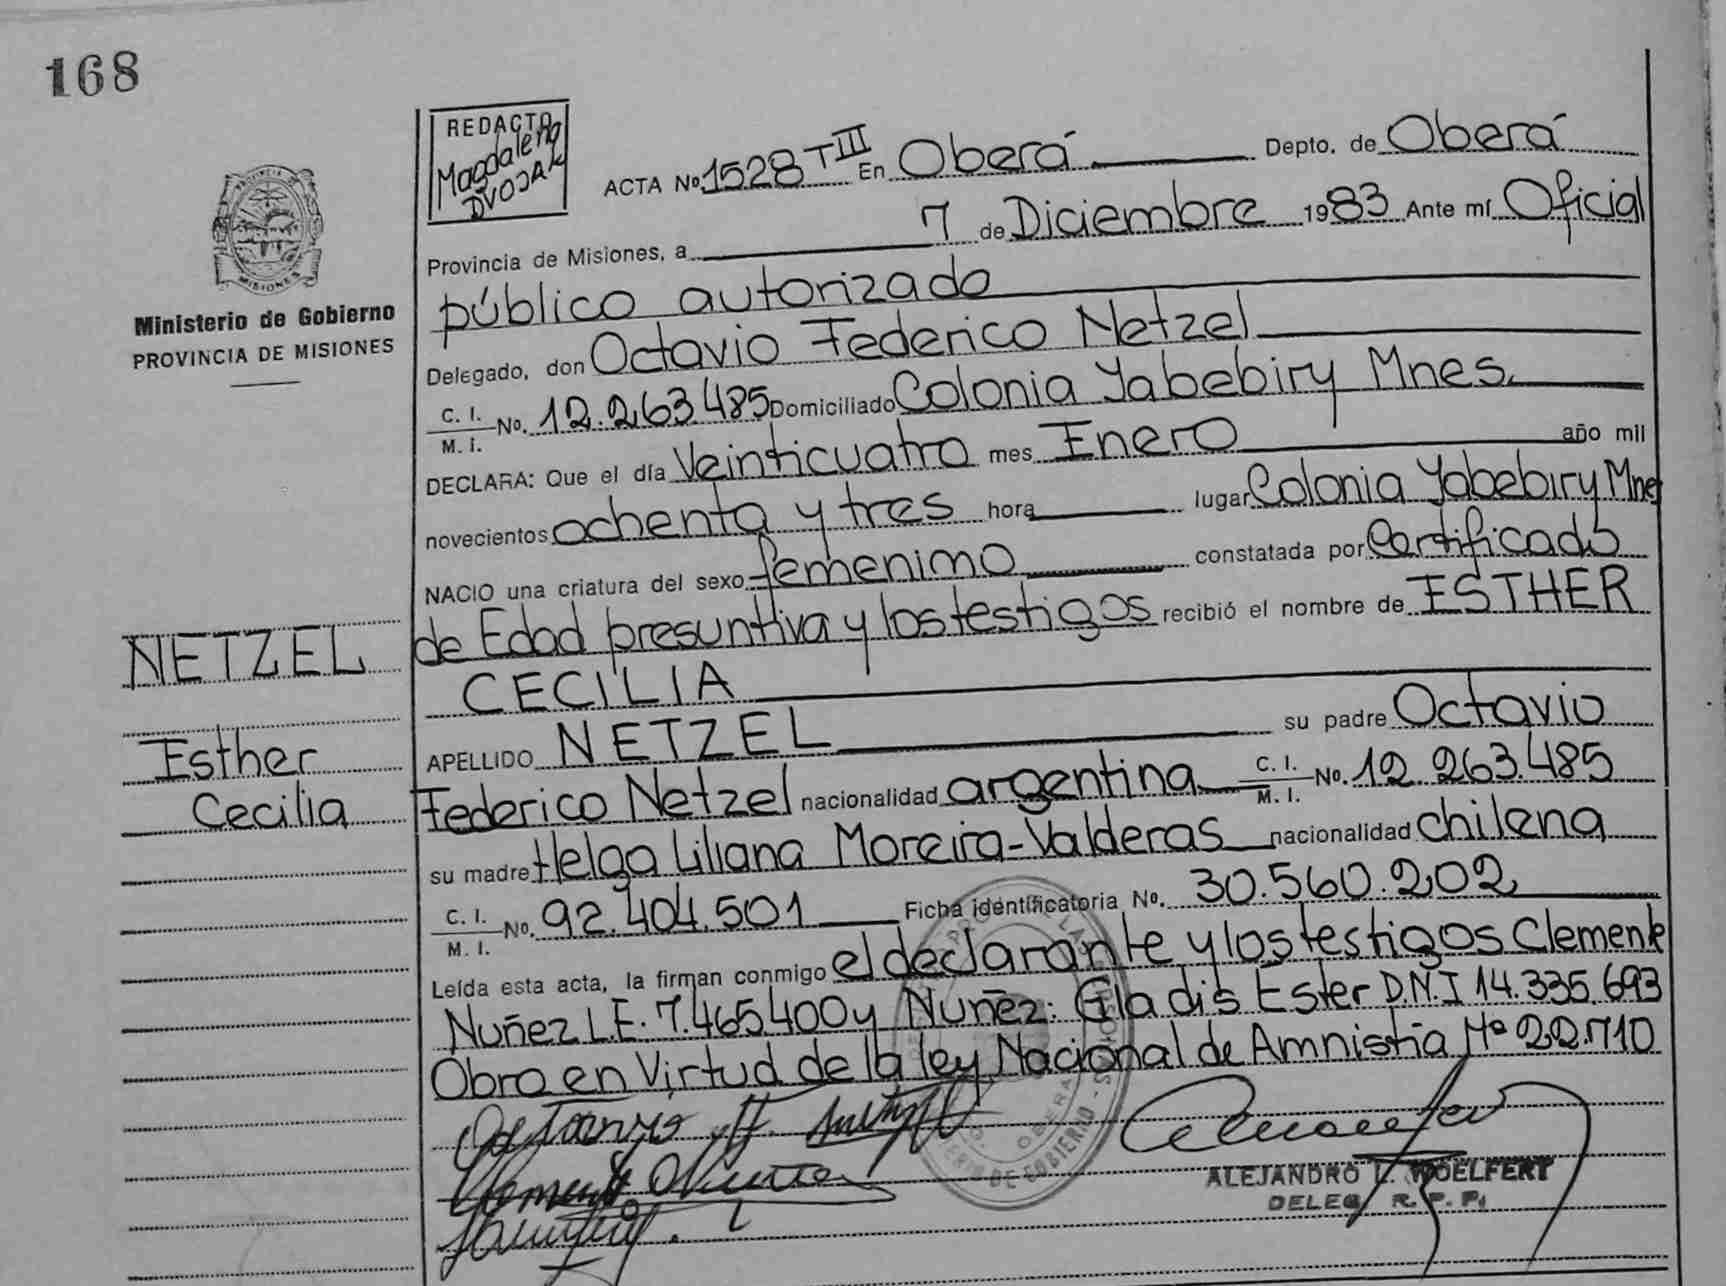 168
REDACTO
Magdalena
DVOJAK
ACTA No 1528 TIII En Oberá Depto. de Oberá
Provincia de Misiones, a 7 de Diciembre 1983 Ante mí Oficial
público autorizado
Delegado, don Octavio Federico Netzel
C. I.
M. I. No. 12.263.485 Domiciliado Colonia Yabebiry Mnes.
DECLARA: Que el día Veinticuatro mes Enero año mil
novecientos ochenta y tres hora lugar Colonia Yabebiry Mnes
NACIO una criatura del sexo femenimo constatada por Certificado
de Edad presuntiva y los testigos recibió el nombre de ESTHER
CECILIA
APELLIDO NETZEL su padre Octavio
Federico Netzel nacionalidad argentina C. I. M. I. No. 12 263.485
su madre Helga Liliana Moreira-Valderas nacionalidad chilena
C. I.
M. I. No. 92.404.501 Ficha identificatoria No. 30.560.202
Leída esta acta, la firman conmigo el declarante y los testigos Clemente
Nuñez L.E. 7.465.400 y Nuñez: Gladis Ester D.N.I 14.335.693
Obra en Virtud de la ley Nacional de Amnistía Nº 22.710
ALEJANDRO L. WOELFERT
DELEG. R. P. P.
PROVINCIA
MISIONES
Ministerio de Gobierno
PROVINCIA DE MISIONES
NETZEL
Esther
Cecilia